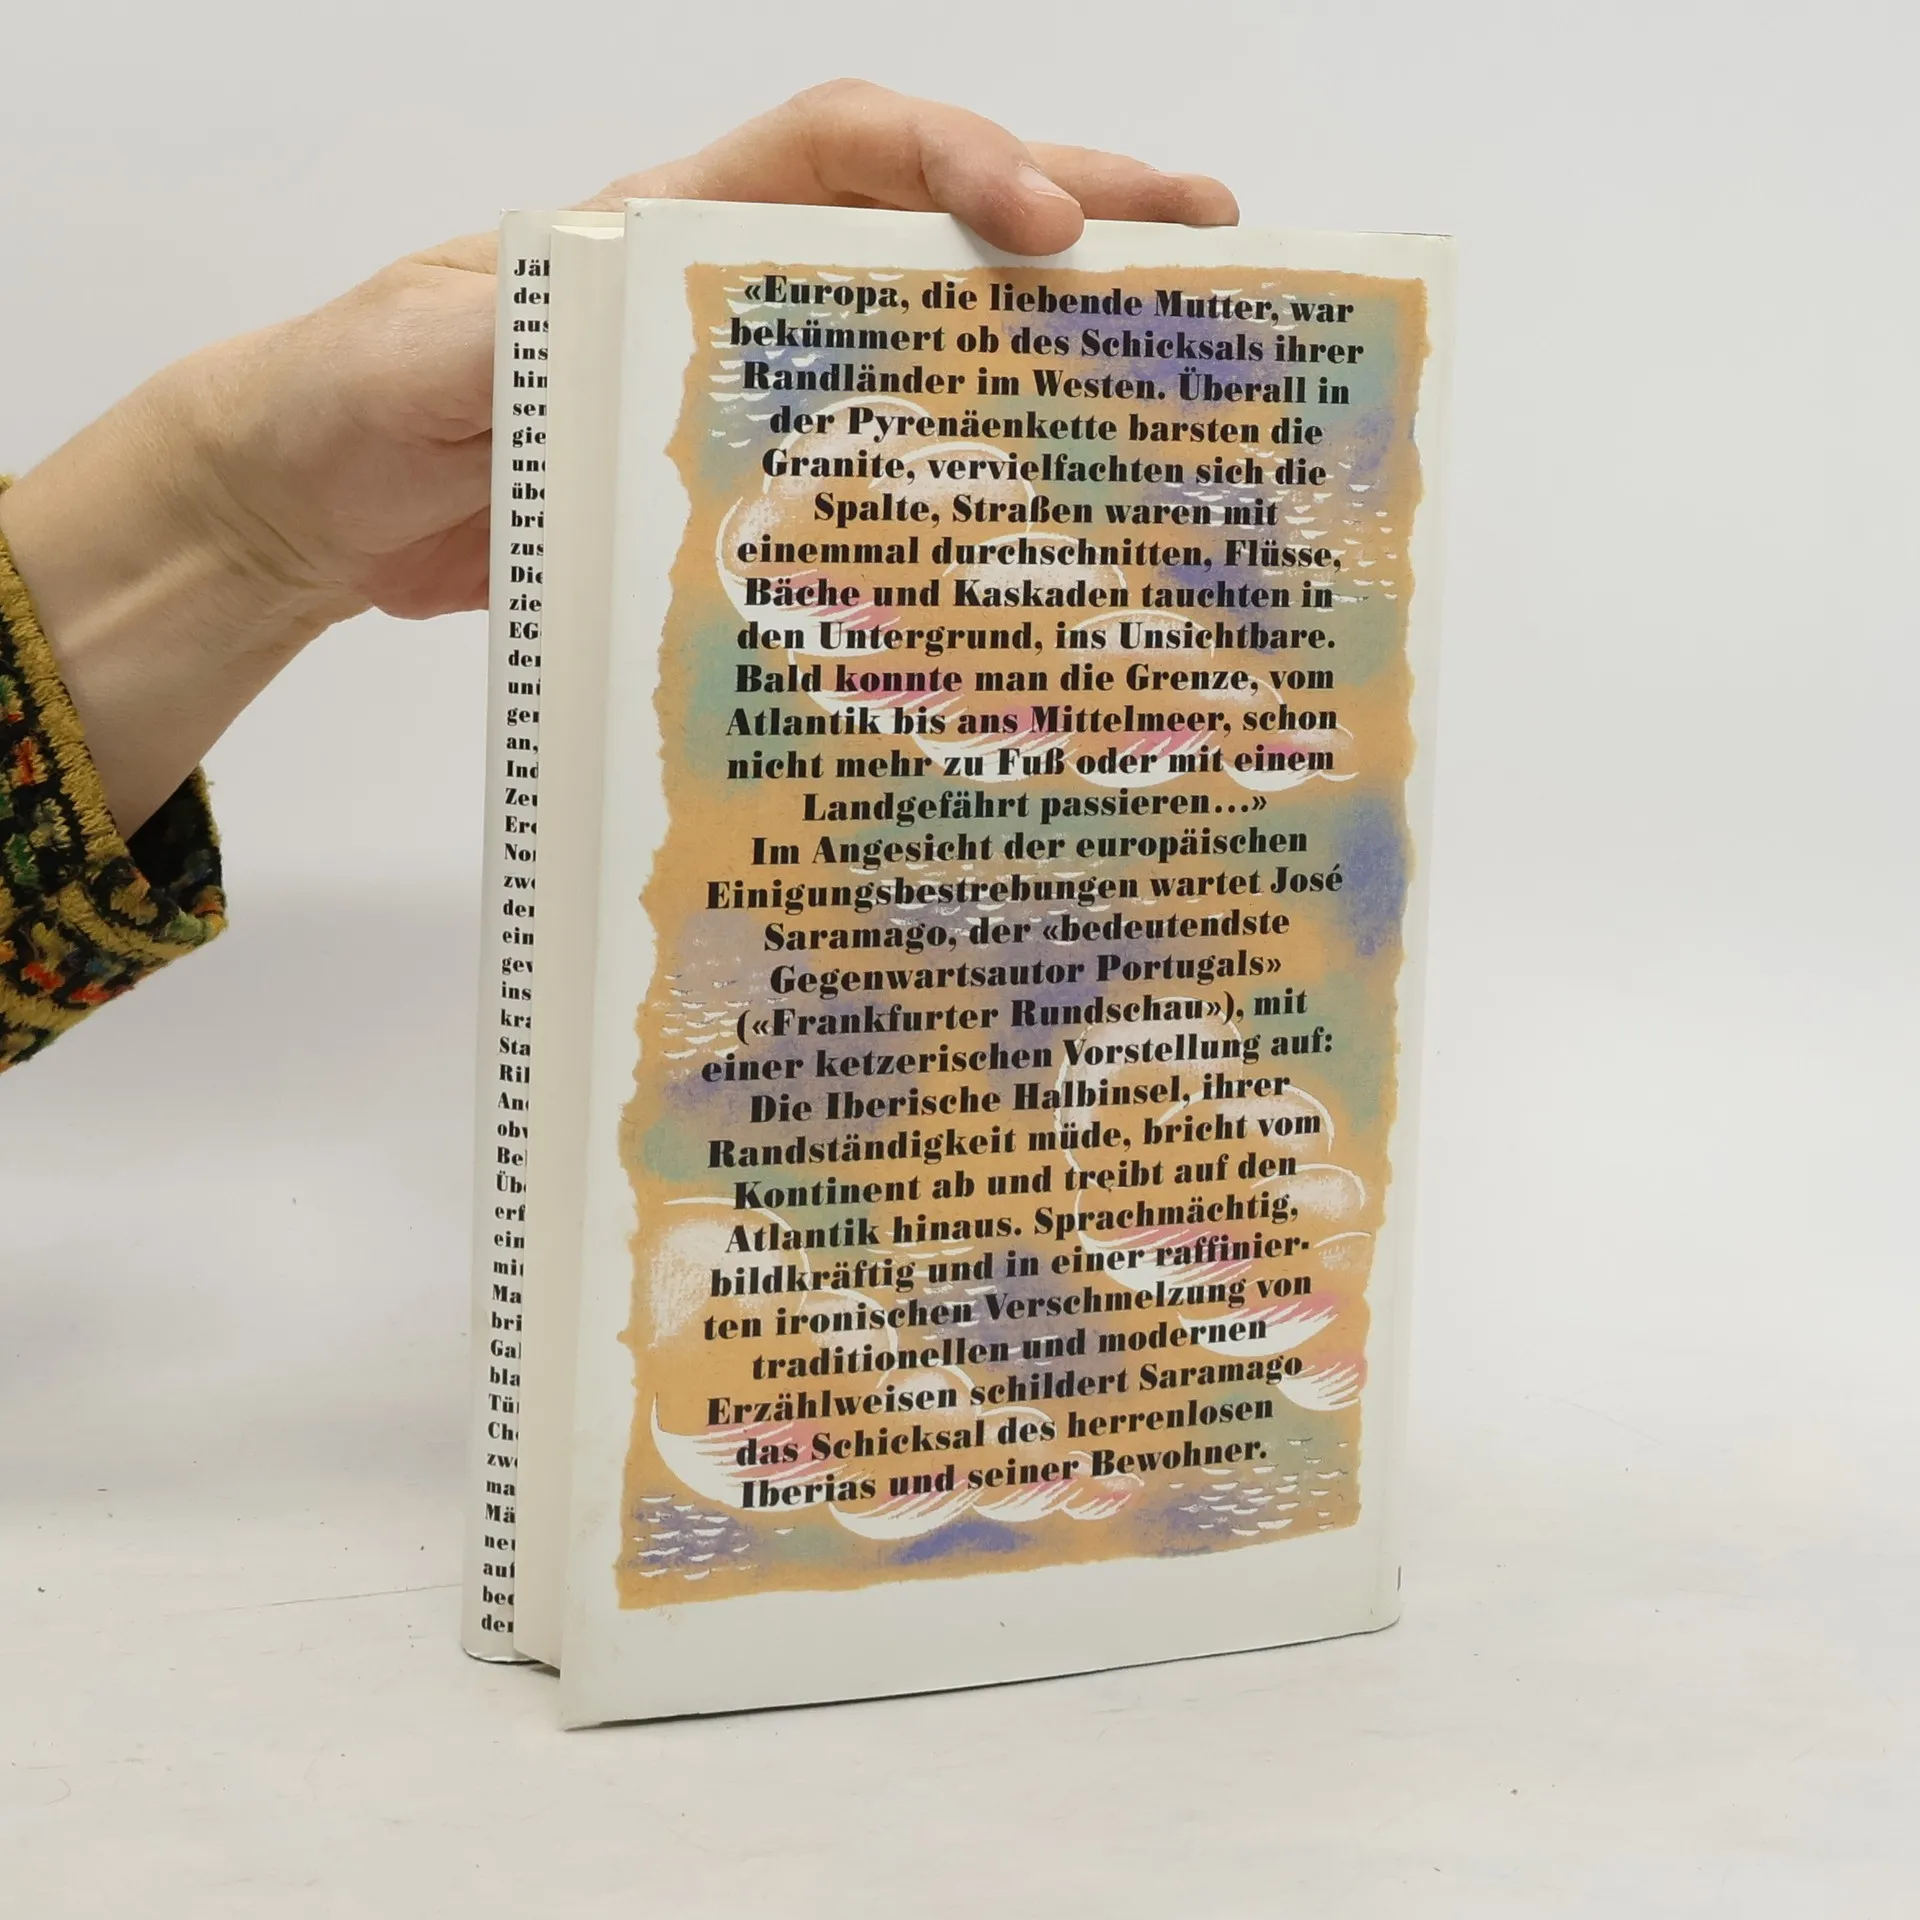 «Europa, die liebende Mutter, war
bekümmert ob des Schicksals ihrer
Randländer im Westen. Überall in
der Pyrenäenkette barsten die
Granite, vervielfachten sich die
Spalte, Straßen waren mit
einemmal durchschnitten, Flüsse,
Bäche und Kaskaden tauchten in
den Untergrund, ins Unsichtbare.
Bald konnte man die Grenze, vom
Atlantik bis ans Mittelmeer, schon
nicht mehr zu Fuß oder mit einem
Landgefährt passieren...»
Im Angesicht der europäischen
Einigungsbestrebungen wartet José
Saramago, der «bedeutendste
Gegenwartsautor Portugals»
(«Frankfurter Rundschau»), mit
einer ketzerischen Vorstellung auf:
Die Iberische Halbinsel, ihrer
Randständigkeit müde, bricht vom
Kontinent ab und treibt auf den
Atlantik hinaus. Sprachmächtig,
bildkräftig und in einer raffinier-
ten ironischen Verschmelzung von
traditionellen und modernen
Erzählweisen schildert Saramago
das Schicksal des herrenlosen
Iberias und seiner Bewohner.